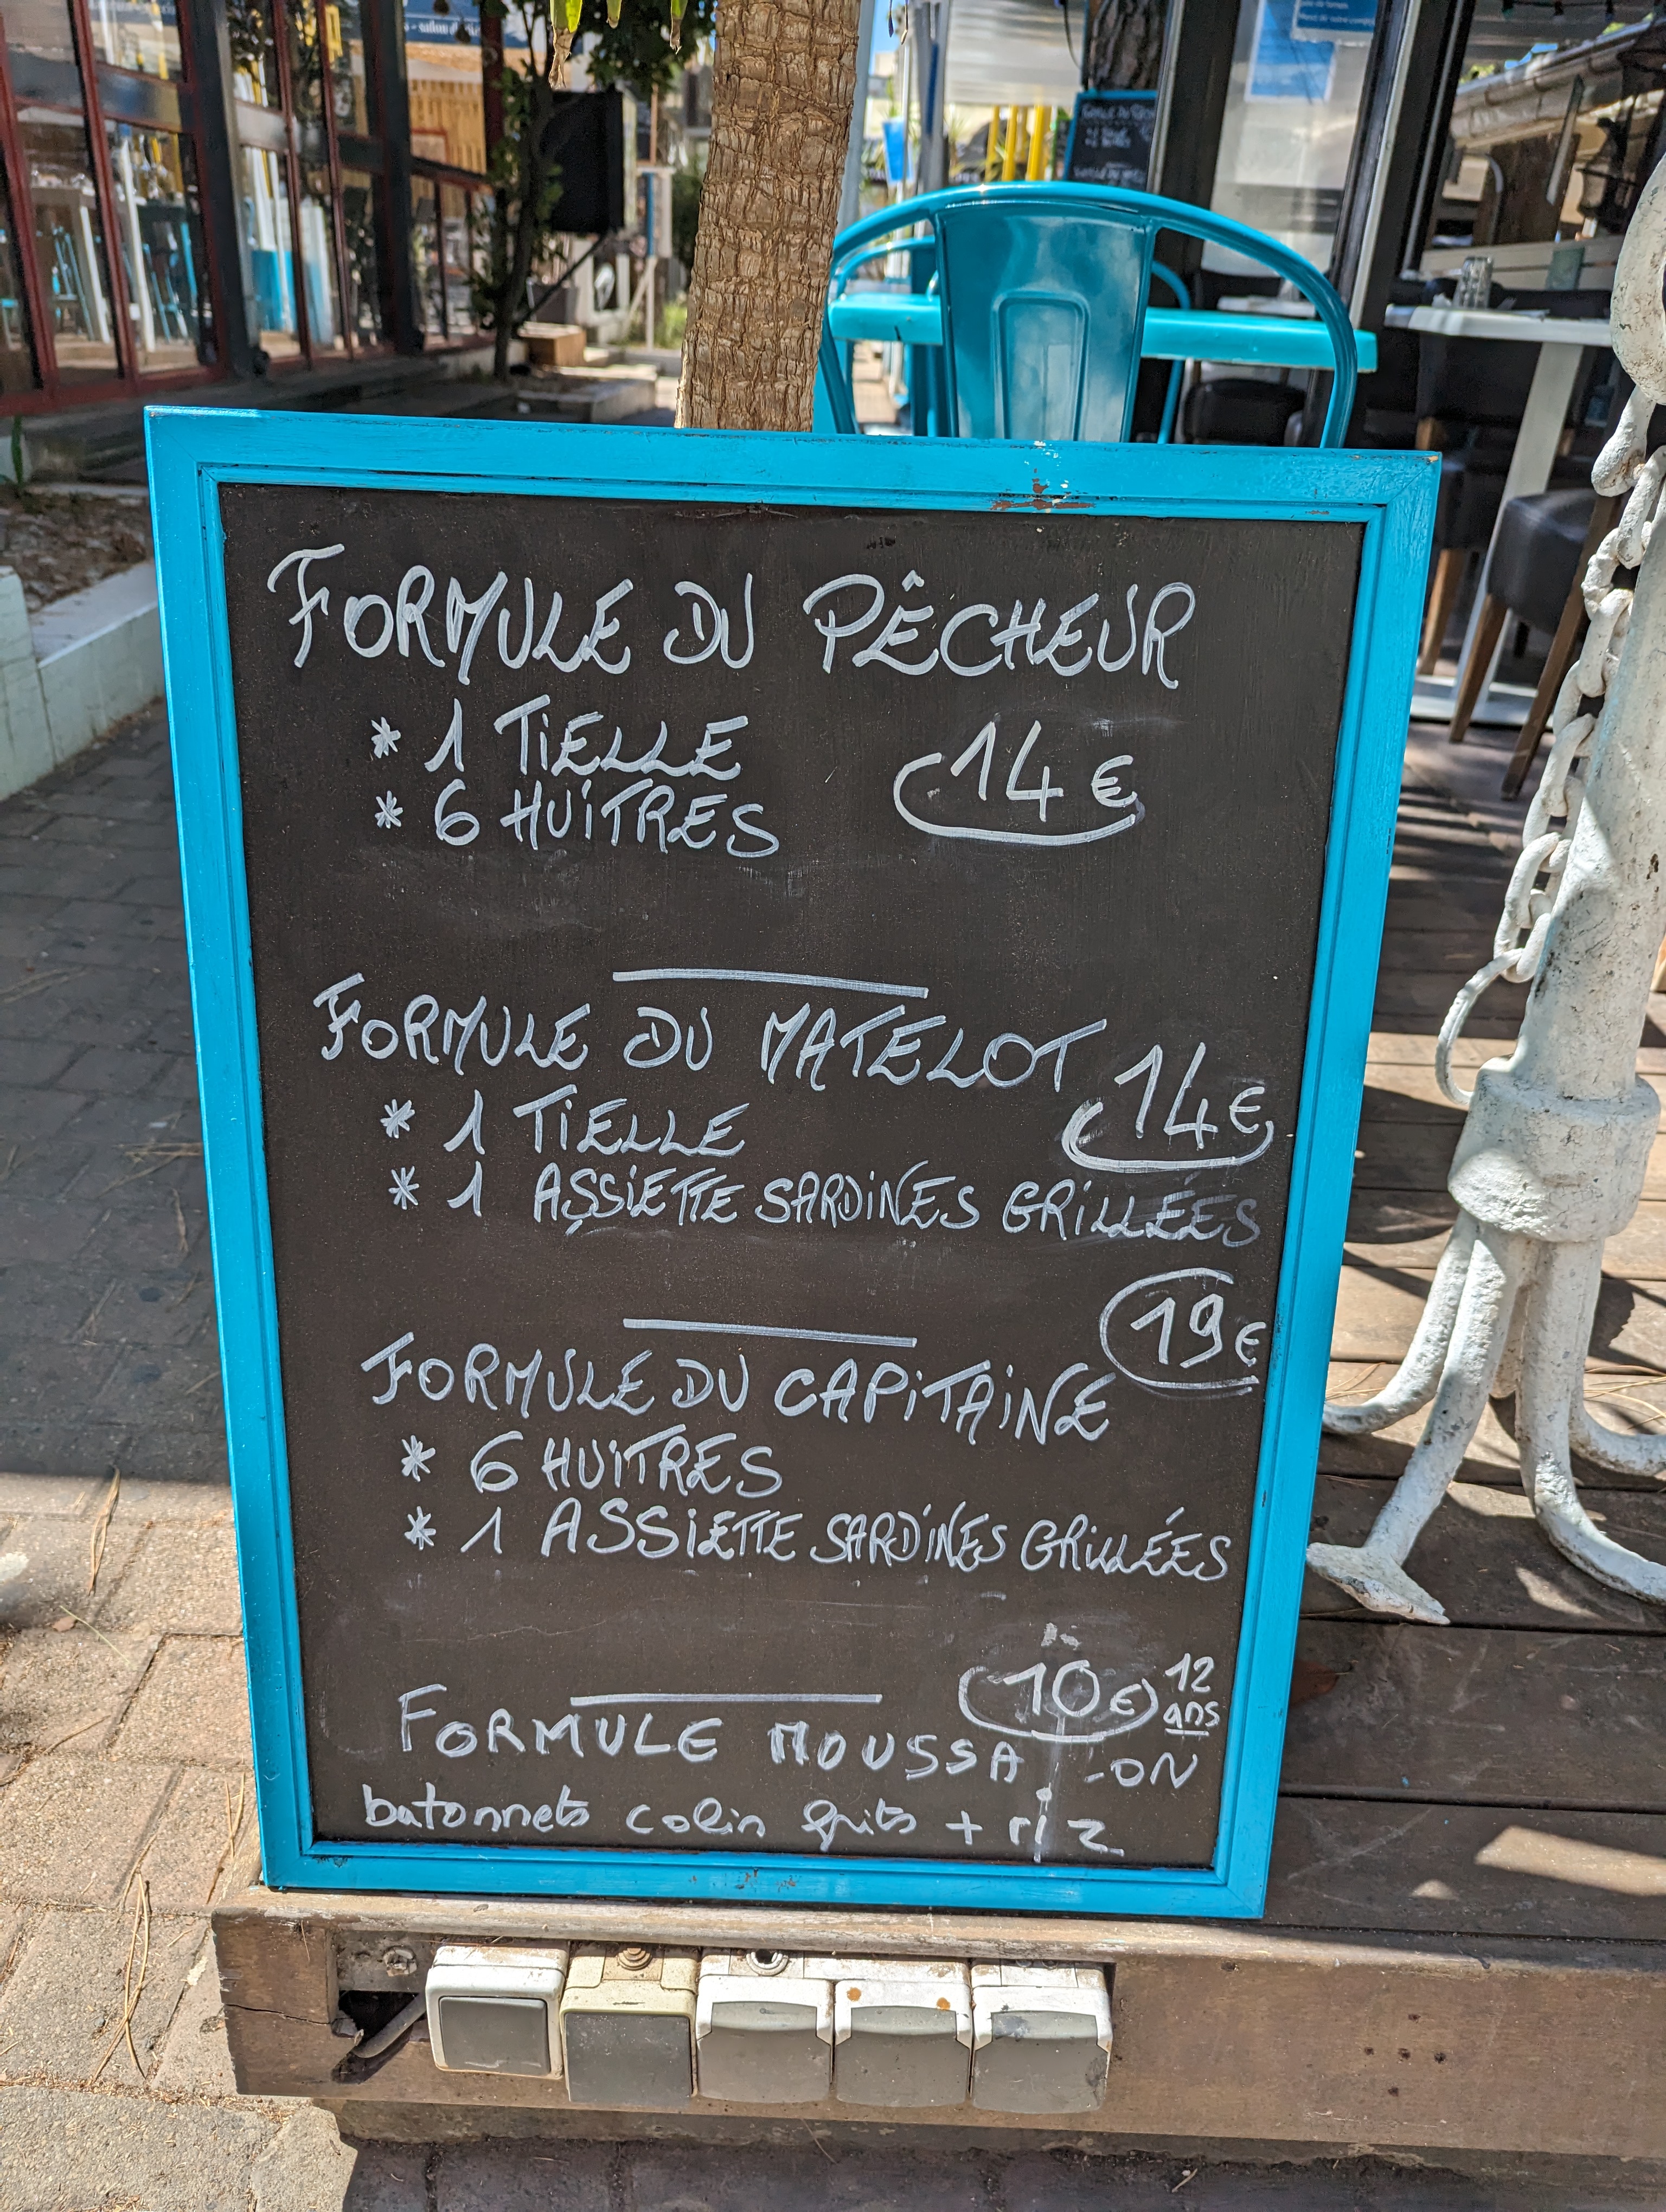 FORMULE DU PÊCHEUR
* 1 TIELLE
14€
* 6 HUITRES
FORMULE DU MATELOT
14€
* 1 TIELLE
* 1 ASSIETTE SARDINES GRILLÉES
19€
FORMULE DU CAPITAINE
* 6 HUITRES
* 1 ASSIETTE SARDINES GRILLÉES
10€ 12 ans
FORMULE MOUSSA -ON
batonnets colin frits + riz